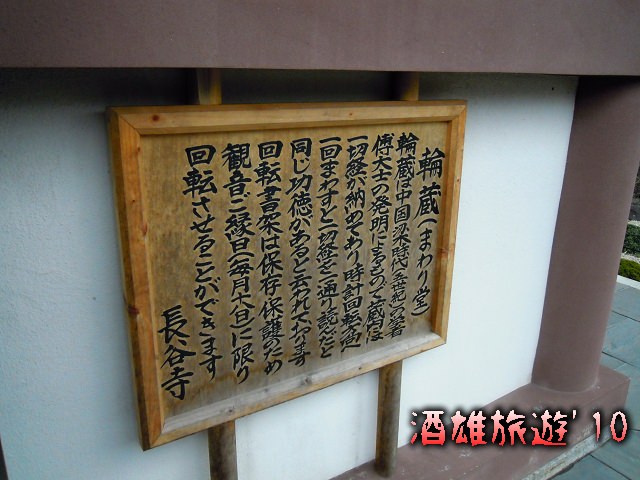 輪蔵(まわり堂)
輪蔵は中国梁時代(六世紀)の学者
傅大士の発明によるもので蔵内は
一切経が納めてあり、時計回転方向へ
一回まわすと一切経を一通り読んだと
同じ功徳があると云われております
回転書架は保存・保護のため
観音ご縁日(毎月十八日)に限り
回転させることができます
長谷寺
酒雄旅遊'10